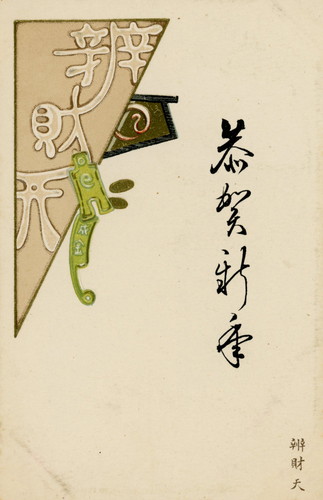 恭賀新年
辨財天
辨財天